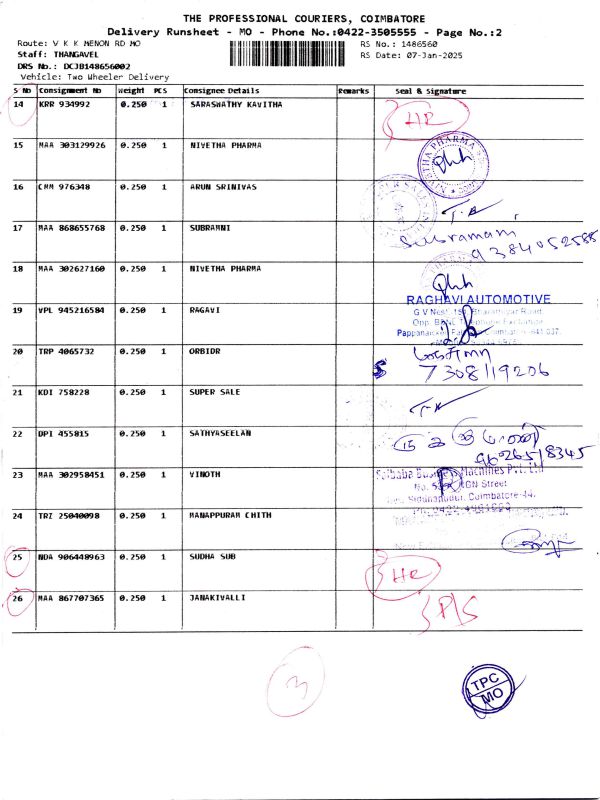 THE PROFESSIONAL COURIERS, COIMBATORE
Delivery Runsheet - MO - Phone No.:0422-3505555 - Page No.:2
Route: V K K MENON RD MO RS No.: 1486560
Staff: THANGAVEL RS Date: 07-Jan-2025
DRS No.: DCJB148656002
Vehicle: Two Wheeler Delivery
S No Consignment No Weight PCS Consignee Details Remarks Seal & Signature
14 KRR 934992 0.250 1 SARASWATHY KAVITHA
15 MAA 303129926 0.250 1 NIVETHA PHARMA
16 CMM 976348 0.250 1 ARUN SRINIVAS
17 MAA 868655768 0.250 1 SUBRAMNI Subramani
9384052588
18 MAA 302627160 0.250 1 NIVETHA PHARMA
RAGHAVI AUTOMOTIVE
19 VPL 945216584 0.250 1 RAGAVI
20 TRP 4065732 0.250 1 ORBIDR
7308119206
21 KDI 758228 0.250 1 SUPER SALE
22 DPI 455815 0.250 1 SATHYASEELAN
23 MAA 302958451 0.250 1 VINOTH
24 TRZ 25040098 0.250 1 MANAPPURAM CHITH
25 NDA 906448963 0.250 1 SUDHA SUB
26 MAA 867707365 0.250 1 JANAKIVALLI P/S
3
TPC
MO